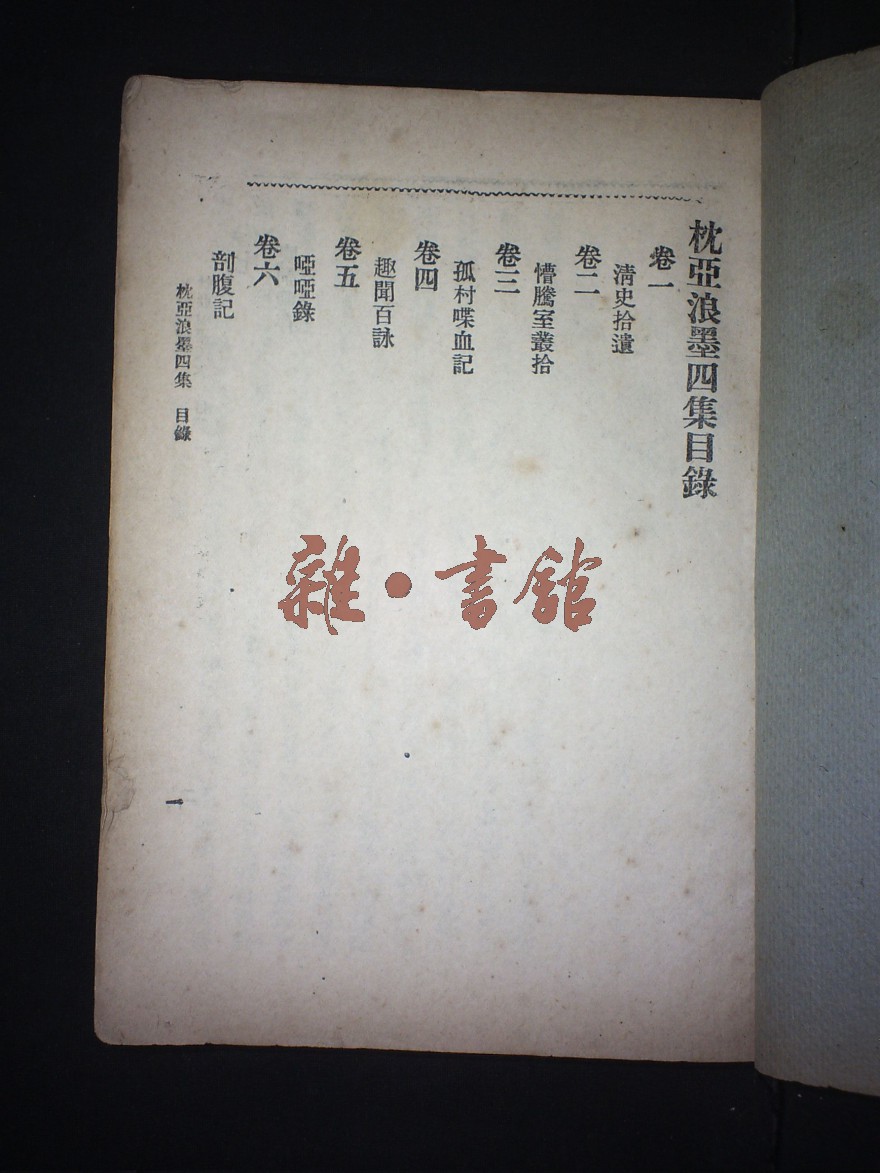 枕亞浪墨四集目錄
卷一
清史拾遺
卷二
懵騰室叢拾
卷三
孤村喋血記
卷四
趣聞百詠
卷五
啞啞錄
卷六
剖腹記
枕亞浪墨四集 目錄
一
雜·書館